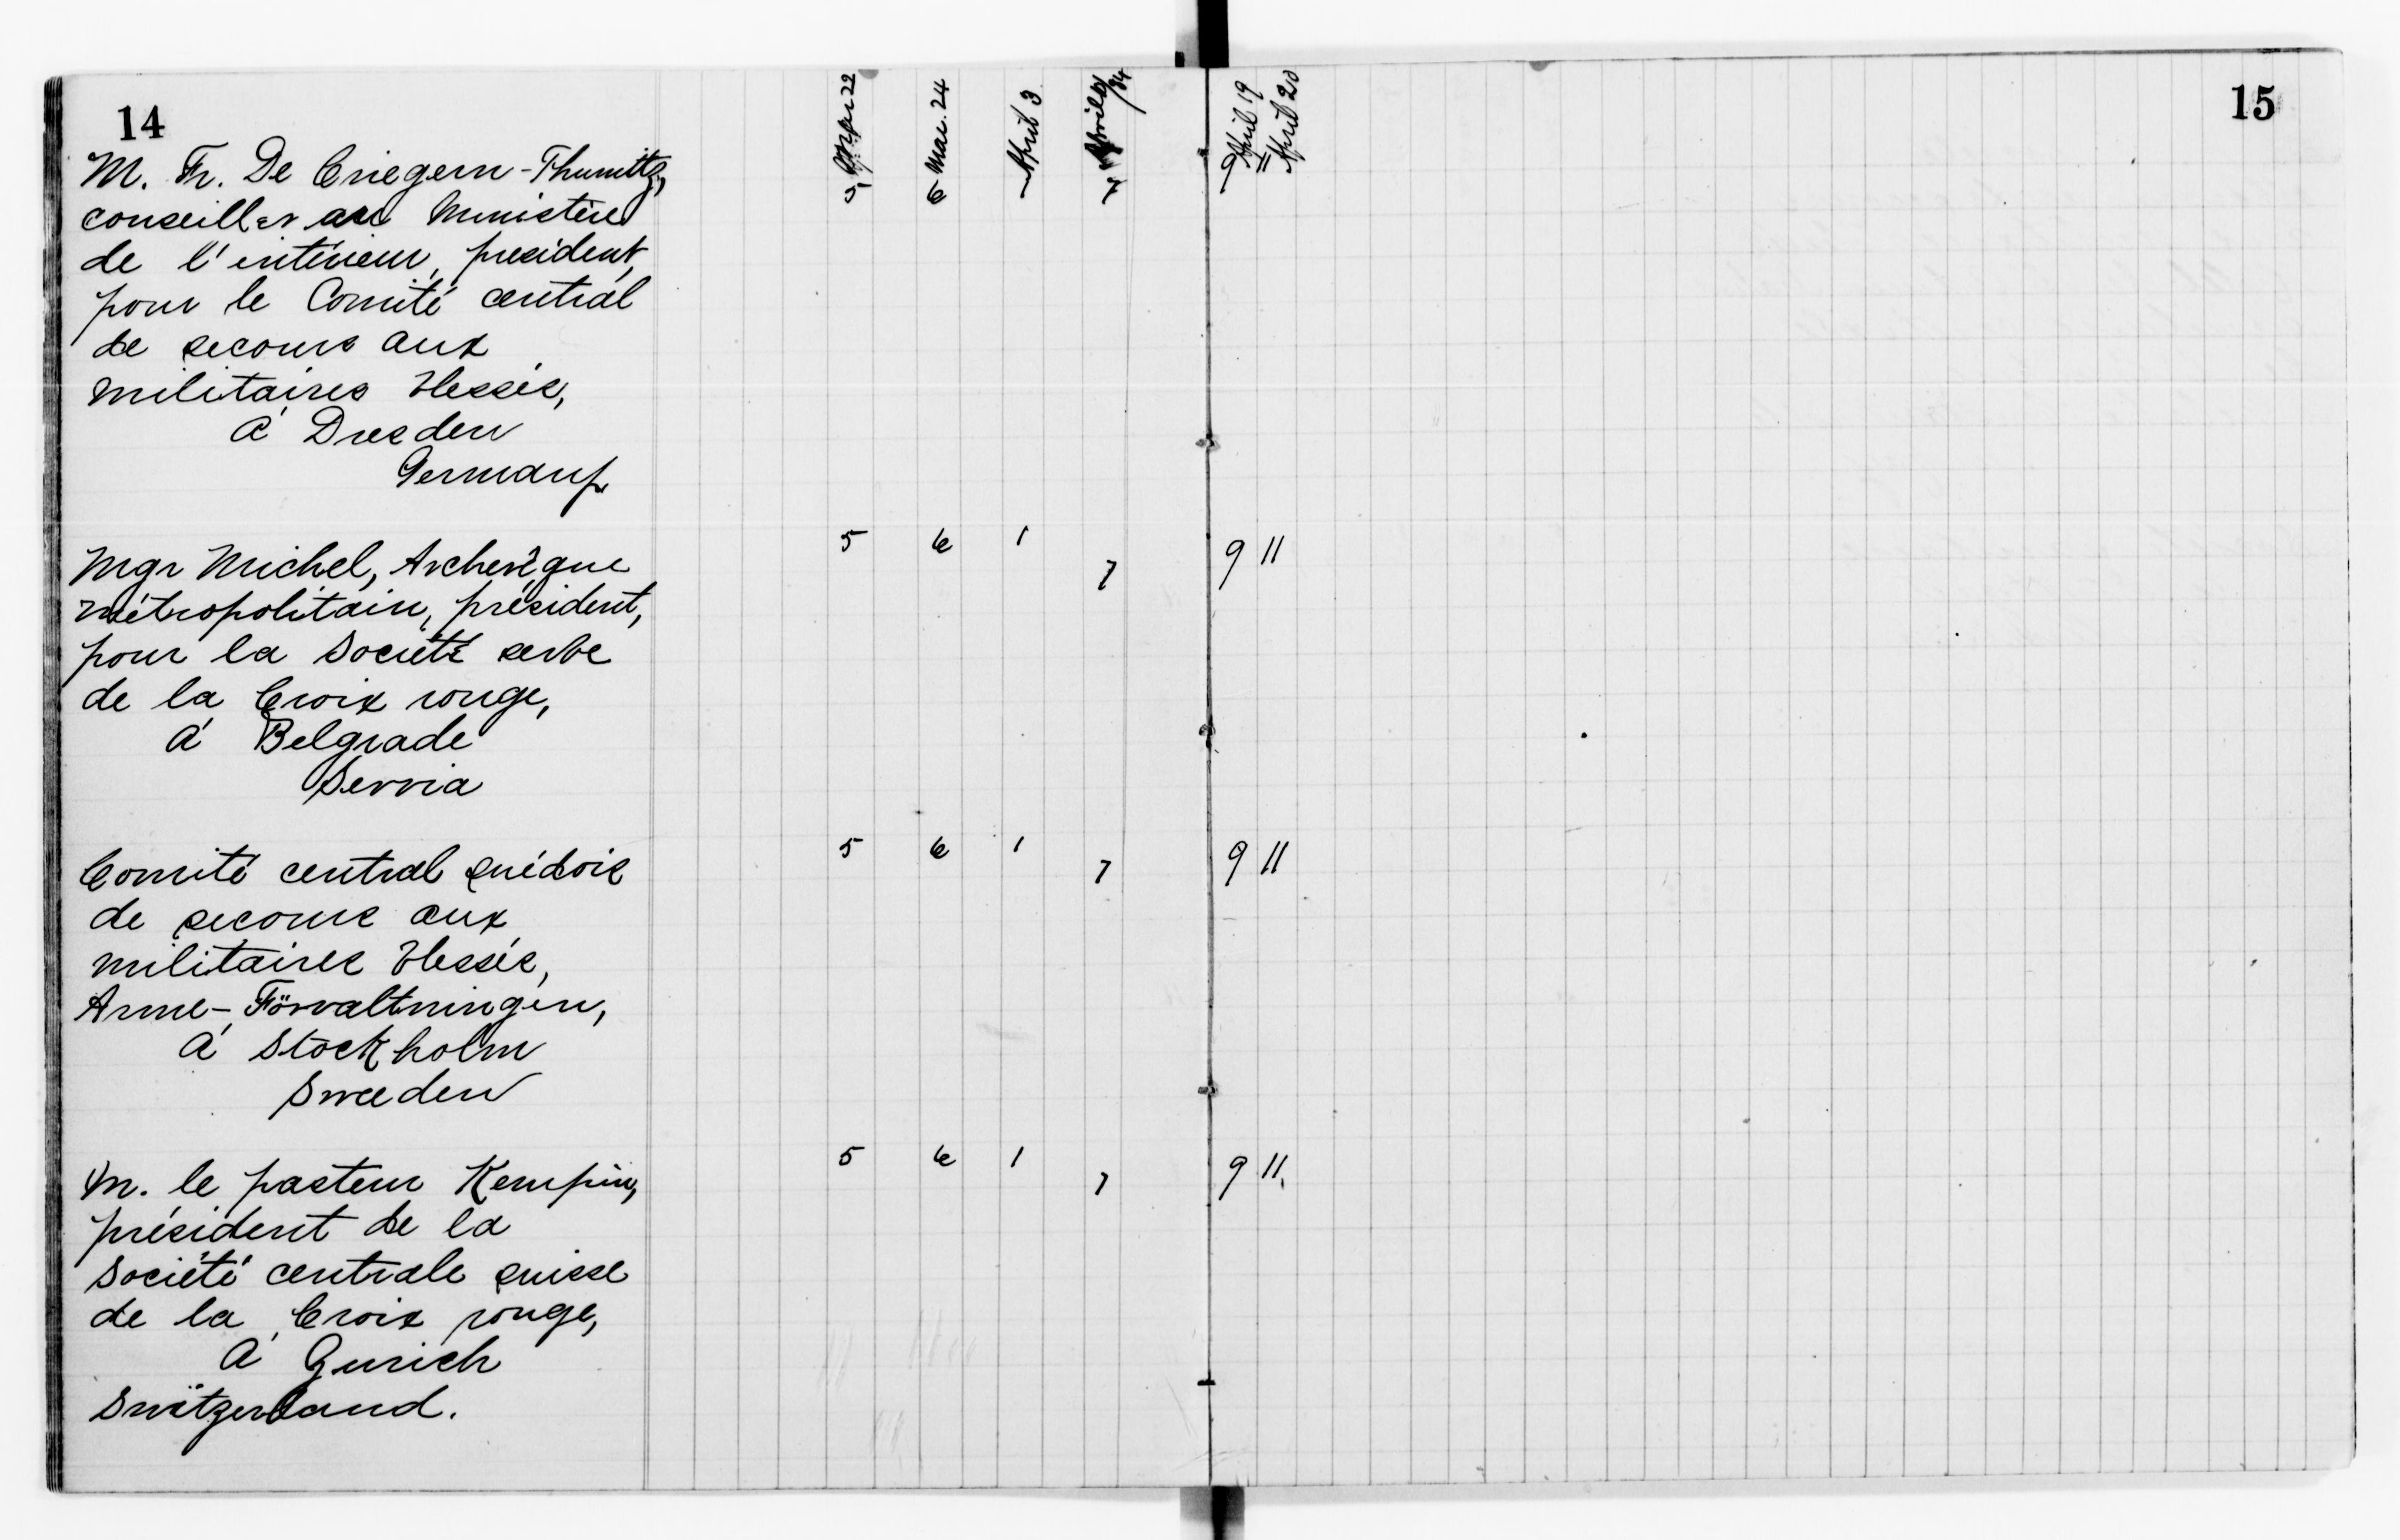 14
5 Mar 22
6 Mar. 24
1 April 3
7 April 14
9 April 19
11 April 20
15
M. Fr. De Criegern-Thumitz,
conseiller au Ministère
de l'intérieur, president,
pour le Comité central
de secours aux
militaires blessés,
À Dresden
Germany
Mgr Michel, Archevêque 5 6 1 7 9 11
métropolitain, président,
pour la Société serbe
de la Croix rouge,
À Belgrade
Servia
Comité central suédois 5 6 1 7 9 11
de secours aux
militaires blessés,
Arme-Förvaltningen,
À Stockholm
Sweden
M. le pasteur Kempin, 5 6 1 7 9 11
président de la
Société centrale suisse
de la Croix rouge,
À Zurich
Switzerland.